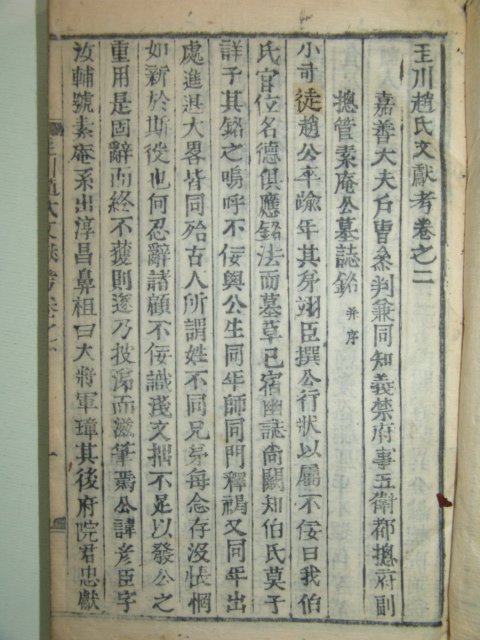 玉川趙氏文獻考卷之二
嘉善大夫戶曹叅判兼同知義禁府事五衛都摠府副
摠管素庵公墓誌銘 并序
小司徒趙公卒踰年其弟翊臣撰公行狀以屬不佞曰我伯
氏官位名德俱應銘法而墓草已宿幽誌尙闕知伯氏莫于
詳予其銘之嗚呼不佞與公生同年師同門釋褐又同年出
處進退大畧皆同殆古人所謂姓不同兄弟每念存沒悵惘
如新於斯役也何忍辭諸顧不佞識淺文拙不足以發公之
重用是固辭而終不獲則遂乃抆涕而滋筆焉公諱彦臣字
汝輔號素庵系出淳昌鼻祖曰大將軍璋其後府院君忠獻